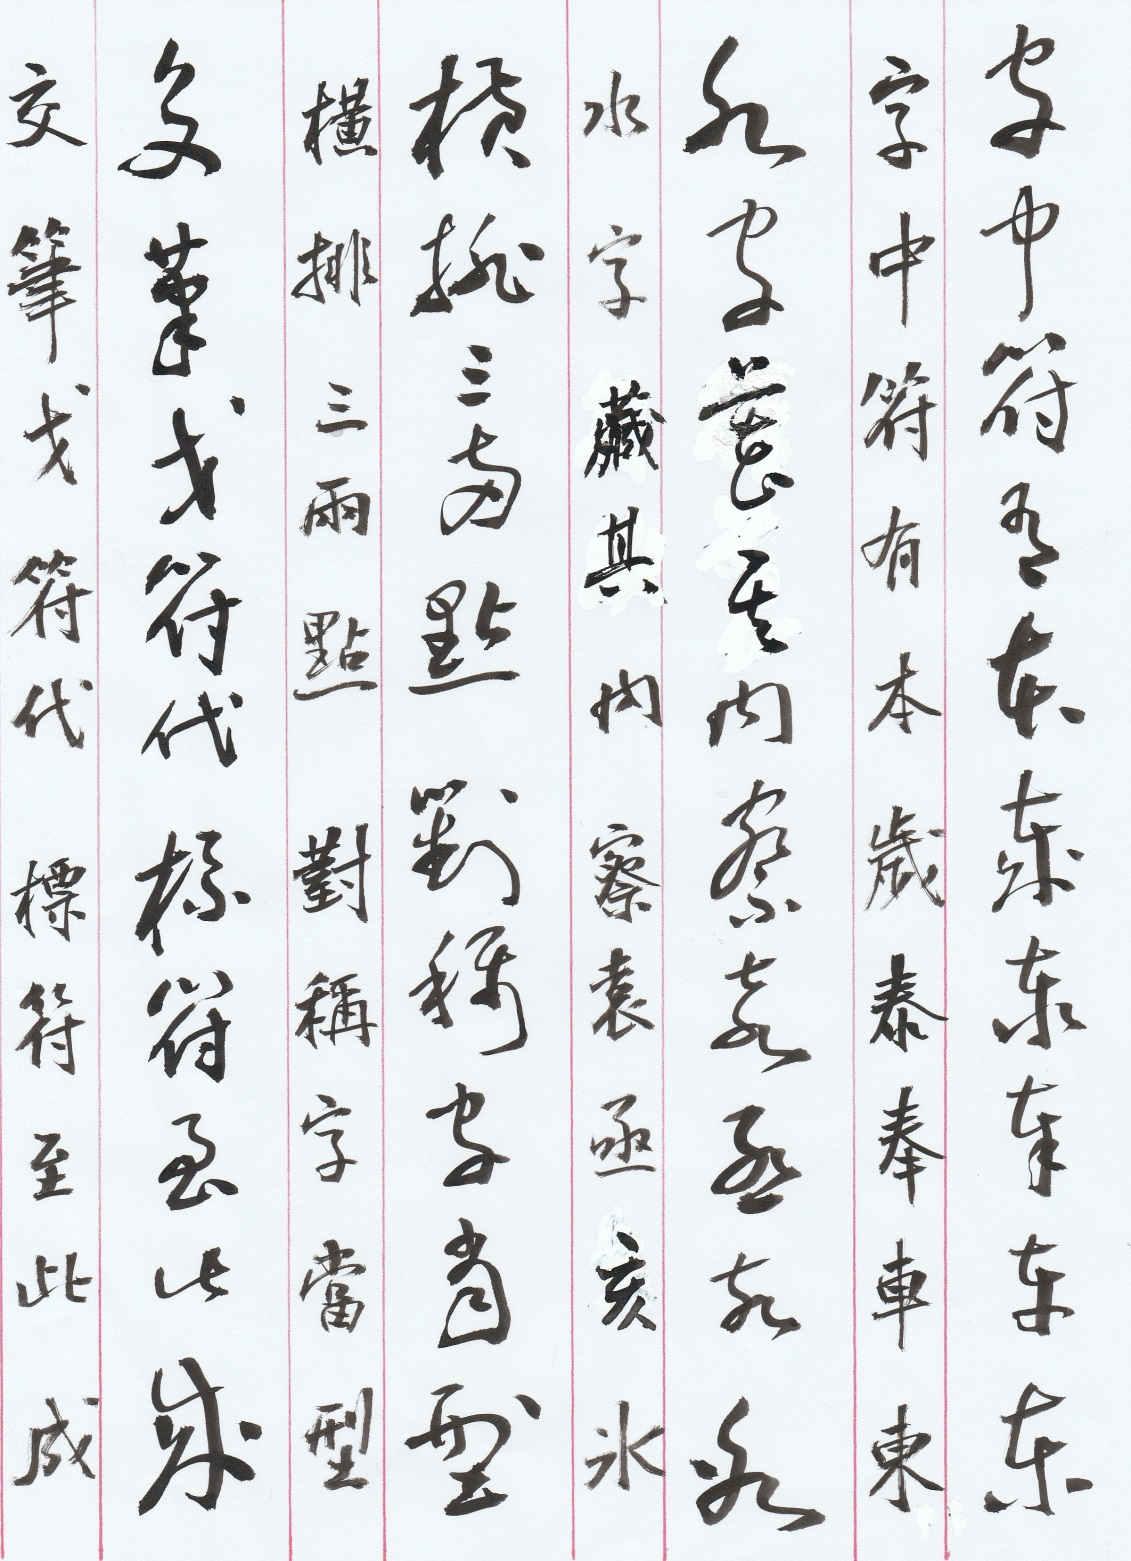 字中符有本歲泰奉車東
字中符有本歲泰奉車東
水字藏其内察袁亟亥氷
水字藏其内察袁亟亥氷
横排三兩點對稱字當型
橫排三兩點對稱字當型
交筆戈符代標符至此成
交筆戈符代標符至此成